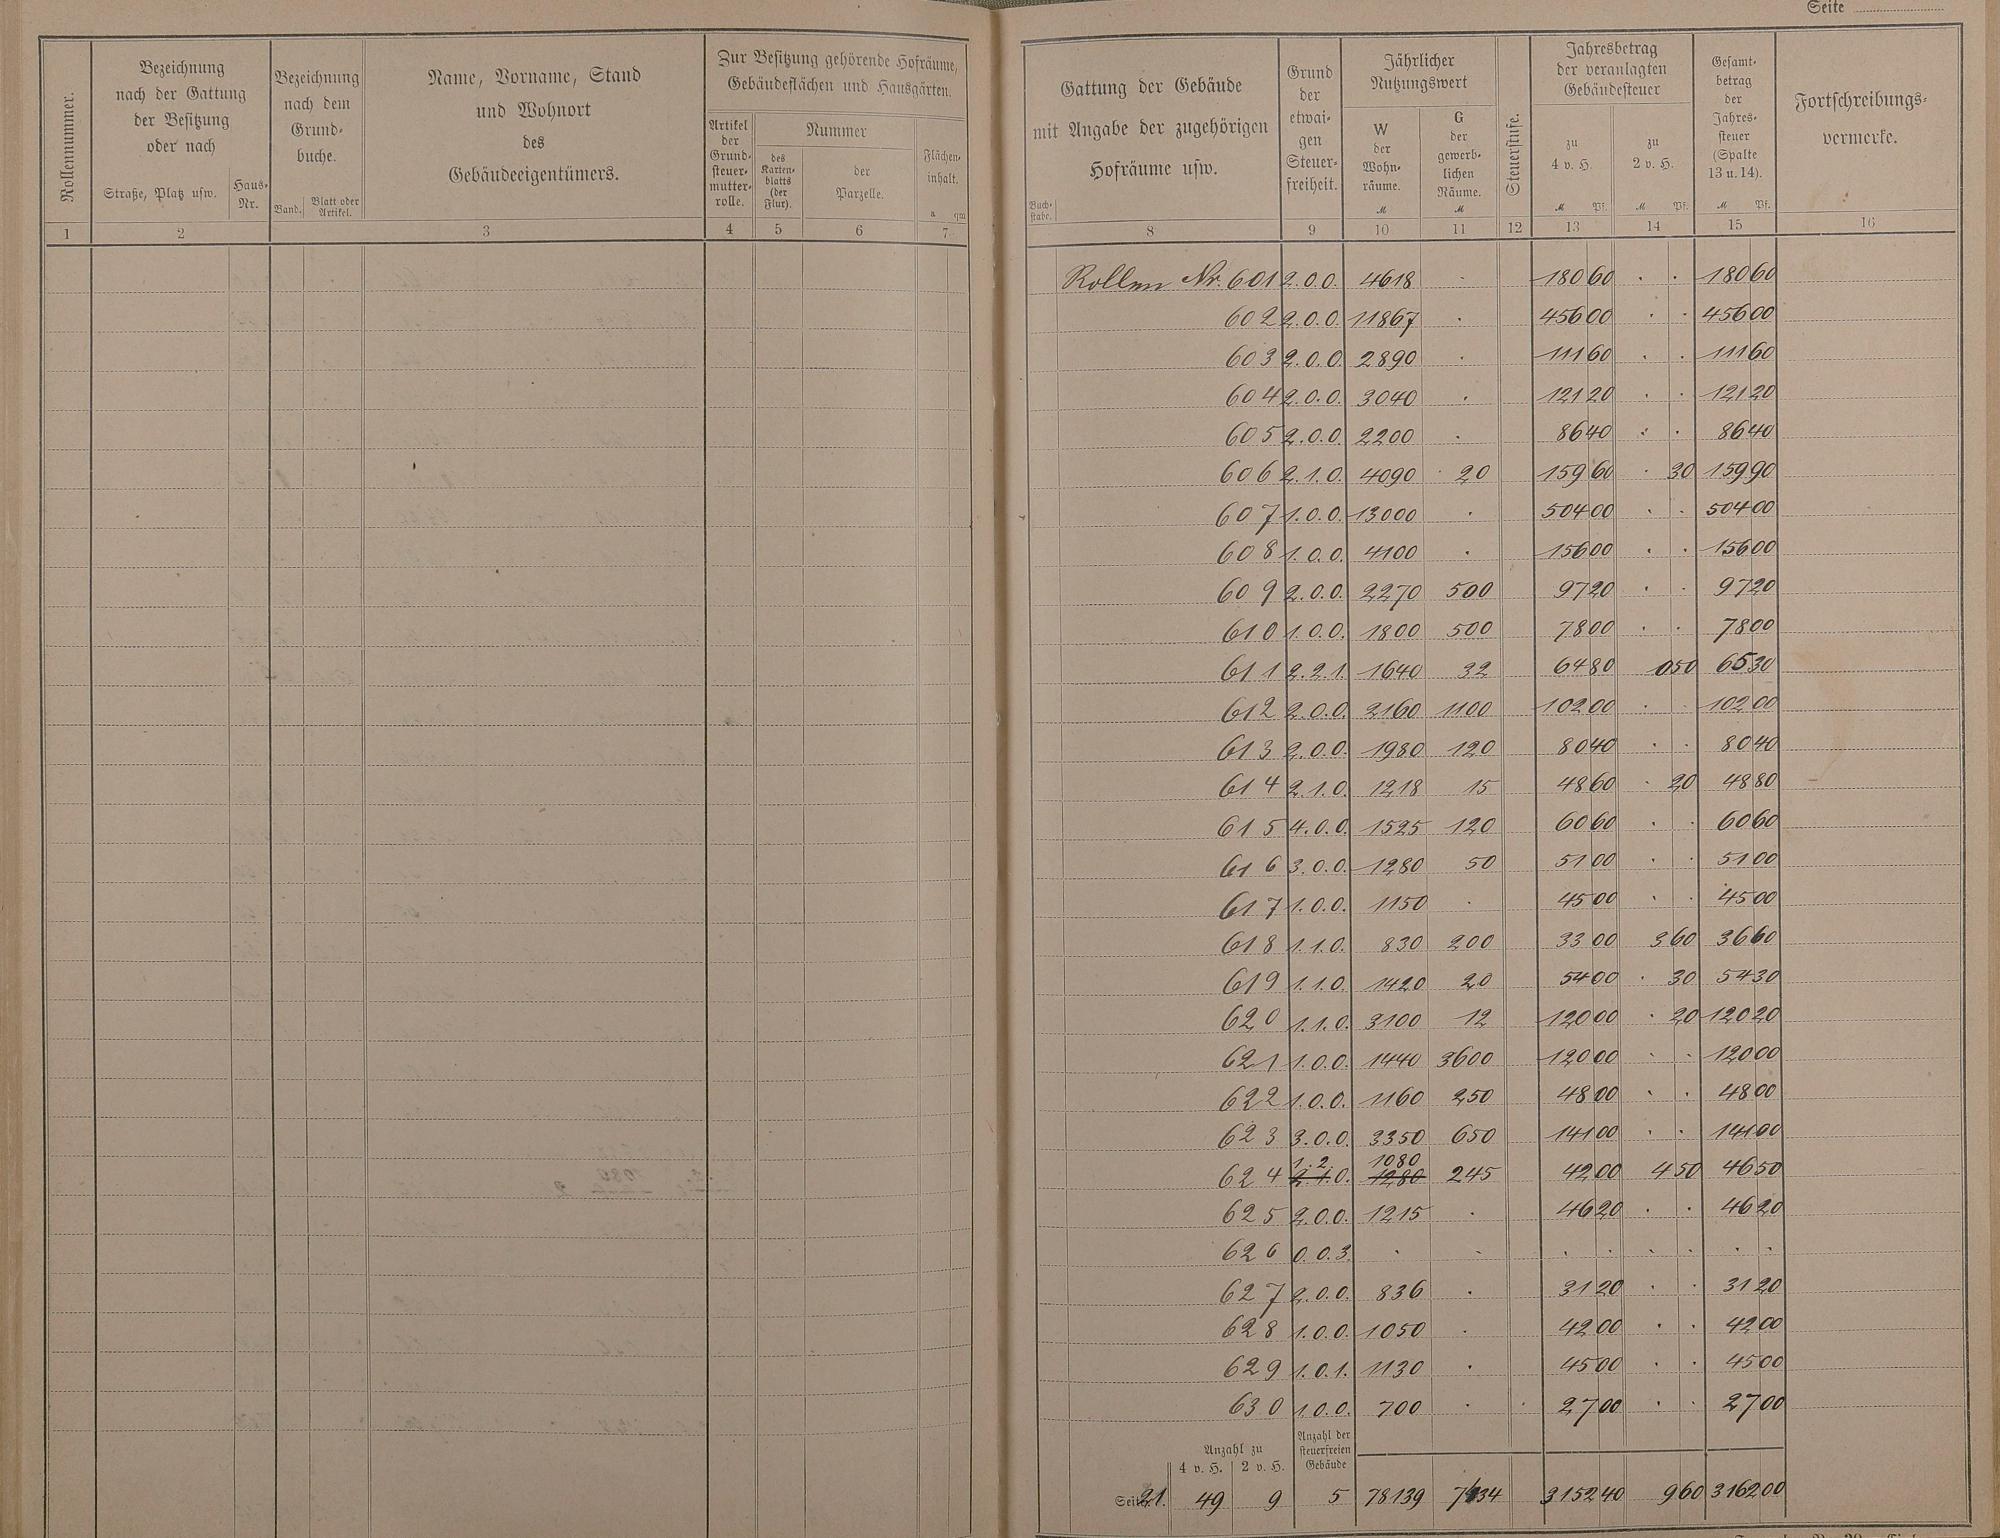 Seite
Rollennummer.
Bezeichnung
nach der Gattung
der Besitzung
oder nach
Straße, Platz usw.
Haus-
Nr.
Bezeichnung
nach dem
Grund-
buche.
Band.
Blatt oder
Artikel.
Name, Vorname, Stand
und Wohnort
des
Gebäudeeigentümers.
Zur Besitzung gehörende Hofräume,
Gebäudeflächen und Hausgärten.
Artikel
der
Grund-
steuer-
mutter-
rolle.
Nummer
des
Karten-
blatts
(der
Flur).
der
Parzelle.
Flächen-
inhalt.
a qm
1 2 3 4 5 6 7
Gattung der Gebäude
mit Angabe der zugehörigen
Hofräume usw.
Buch-
stabe.
Grund
der
etwai-
gen
Steuer-
freiheit.
Jährlicher
Nutzungswert
W
der
Wohn-
räume.
M
G
der
gewerb-
lichen
Räume.
M
Steuerstufe.
Jahresbetrag
der veranlagten
Gebäudesteuer
zu
4 v. H.
M Pf.
zu
2 v. H.
M Pf.
Gesamt-
betrag
der
Jahres-
steuer
(Spalte
13 u. 14).
M Pf.
Fortschreibungs-
vermerke.
8 9 10 11 12 13 14 15 16
Rollen Nr. 601 2.0.0. 4618 . 180 60 . . 180 60
602 2.0.0. 11867 . 456 00 . . 456 00
603 2.0.0. 2890 . 111 60 . . 111 60
604 2.0.0. 3040 . 121 20 . . 121 20
605 2.0.0. 2200 . 86 40 . . 86 40
606 2.1.0. 4090 20 159 60 . 30 159 90
607 1.0.0. 13000 . 504 00 . . 504 00
608 1.0.0. 4100 . 156 00 . . 156 00
609 2.0.0. 2270 500 97 20 . . 97 20
610 1.0.0. 1800 500 78 00 . . 78 00
611 2.2.1. 1640 32 64 80 0 50 65 30
612 2.0.0. 2160 1100 102 00 . . 102 00
613 2.0.0. 1980 120 80 40 . . 80 40
614 2.1.0. 1218 15 48 60 . 20 48 80
615 4.0.0. 1525 120 60 60 . . 60 60
616 3.0.0. 1280 50 51 00 . . 51 00
617 1.0.0. 1150 . 45 00 . . 45 00
618 1.1.0. 830 200 33 00 3 60 36 60
619 1.1.0. 1420 20 54 00 . 30 54 30
620 1.1.0. 3100 12 120 00 . 20 120 20
621 1.0.0. 1440 3600 120 00 . . 120 00
622 1.0.0. 1160 250 48 00 . . 48 00
623 3.0.0. 3350 650 141 00 . . 141 00
1.2. 1080
624 2.1.0. 1280 245 42 00 4 50 46 50
625 2.0.0. 1215 . 46 20 . . 46 20
626 0.0.3. . . . . . . . .
627 2.0.0. 836 . 31 20 . . 31 20
628 1.0.0. 1050 . 42 00 . . 42 00
629 1.0.1. 1130 . 45 00 . . 45 00
630 1.0.0. 700 . . 27 00 . . 27 00
Anzahl zu
4 v. H. 2 v. H.
Anzahl der
steuerfreien
Gebäude
Seite 21. 49 9 5 78139 3152 40 9 60 3162 00